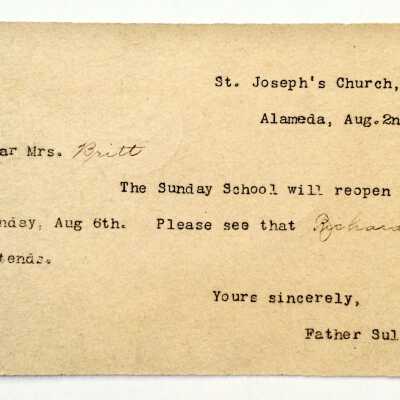 St. Joseph's Church,
Alameda, Aug.2n
ar Mrs. Britt
The Sunday School will reopen
nday, Aug 6th. Please see that Richard
tends.
Yours sincerely,
Father Sul